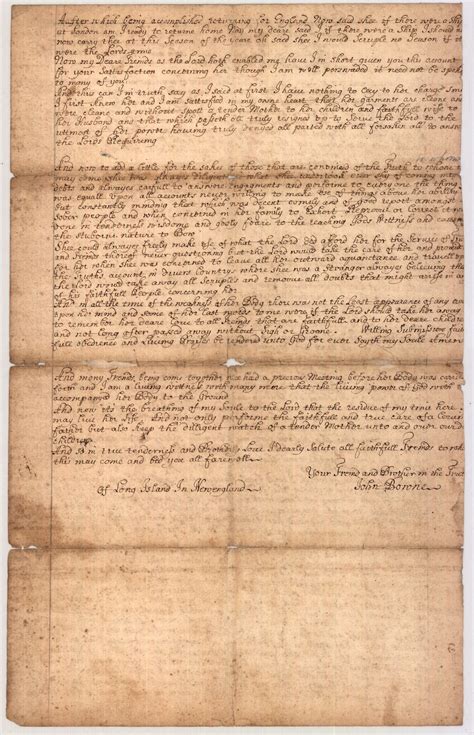 After which being accomplished returning for England Now said shee if there were a Ship
at London am I ready to returne home Nay my deare said I if there were a Ship I should
now carry thee at this season of the yeare oh said shee I would scruple no season if it
were the Lords time
Now my Deare Freinds as the Lord hath enabled me have I in short given you this account
for your Satisfaction concerning her though I am well perswaded it need not be
to many of you
And this can I in truth say as I said at first I have nothing to lay to her charge since
I first knew her and I am satisfied in my owne heart that her garments are cleane
cleane and without Spott a tender Mother to her Children and faithfull wife
her Husband and that which passeth all truly resigned up to serve the Lord to the
uttmost of her power having truly denyed all parted with all forsaken all to
the Lords
And now to add a little for the sakes of those that are convinced of the Truth
may come
debt and alwayes carfull to answere engagments and performe to every one the thing
was equall Upon all accounts never willing to make use of things above her
but constantly minding that which was decent comely and of good report amongst
sober people and when concerned in her family to Exhort Reproove or Correct it
done in tendernes wisdome and godly feare to the reaching Gods Wittness and
the stuborne nature to Bow
Shee could freely make use of what the Lord did afford her for the Servise of
and Freinds thereof never questioning but the Lord would take the care of her and
for her when shee was concerned to leave all her outward aquaintance and travell
the Truths account in divers Countrys where shee was a Stranger alwayes believing
the Lord would take away all Scruples and remove all doubts that might arise in
of his faithfull People concerning her
And in all the time of the weakness of her Body there was not the Least appearance of any
upon her mind and some of her last words to me were if the Lord should take her away
to remember her deare Love to all Freinds that are faithfull and to her deare
and not long after passed away without Sigh or Groane Willing Submission
obedience and living Praises be rendered unto God for ever Sayth my Soule Amen
And many Freinds being come together we had a precious Meeting before her Body was
forth and I am a living wittness with many more that the living power of God
accompanied her Body to the Ground
And now its the breathing of my Soule to the Lord that the residue of my time here
may live her life And not only performe the faithfull and true care of a
father but also keep the dilligent watch of a tender Mother unto and over
children
And so in true tenderness and Brotherly Love I dearly Salute all faithfull Freinds
the may come and bid you all farewell
Your Freind and Brother in the
Of Long Island In Newengland John Bowne